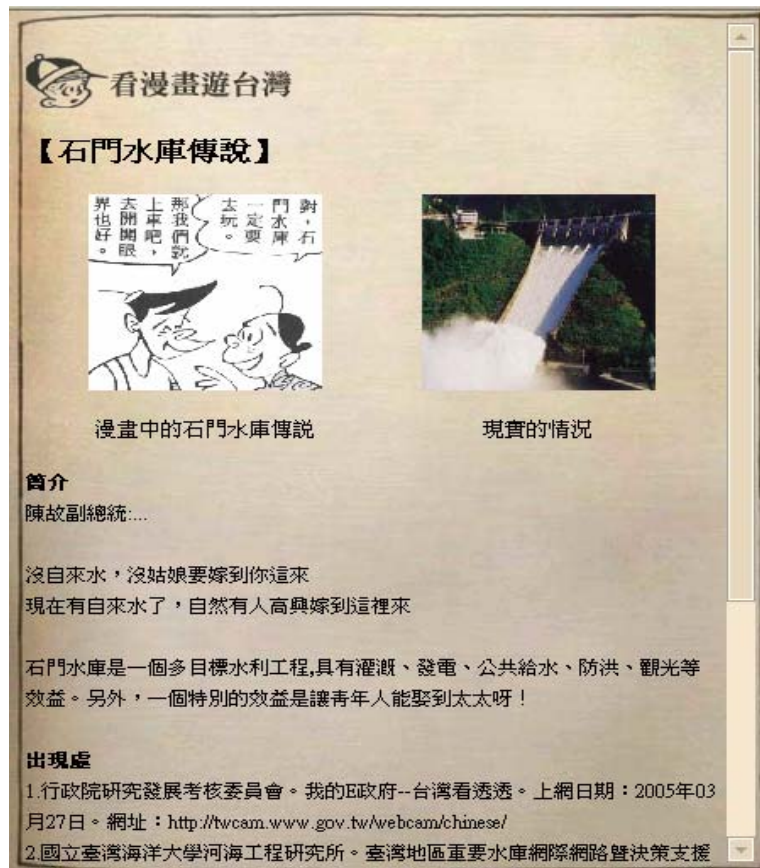 看漫畫遊台灣
【石門水庫傳說】
對，石
門水庫
一定要
去玩。
那我們就
上車吧，
去開開眼
界也好。
漫畫中的石門水庫傳說
現實的情況
簡介
陳故副總統:...
沒自來水，沒姑娘要嫁到你這來
現在有自來水了，自然有人高興嫁到這裡來
石門水庫是一個多目標水利工程,具有灌溉、發電、公共給水、防洪、觀光等
效益。另外，一個特別的效益是讓青年人能娶到太太呀！
出現處
1.行政院研究發展考核委員會。我的E政府--台灣看透透。上網日期：2005年03
月27日。網址：http://twcam.www.gov.tw/webcam/chinese/
2.國立臺灣海洋大學河海工程研究所。臺灣地區重要水庫網際網路暨決策支援